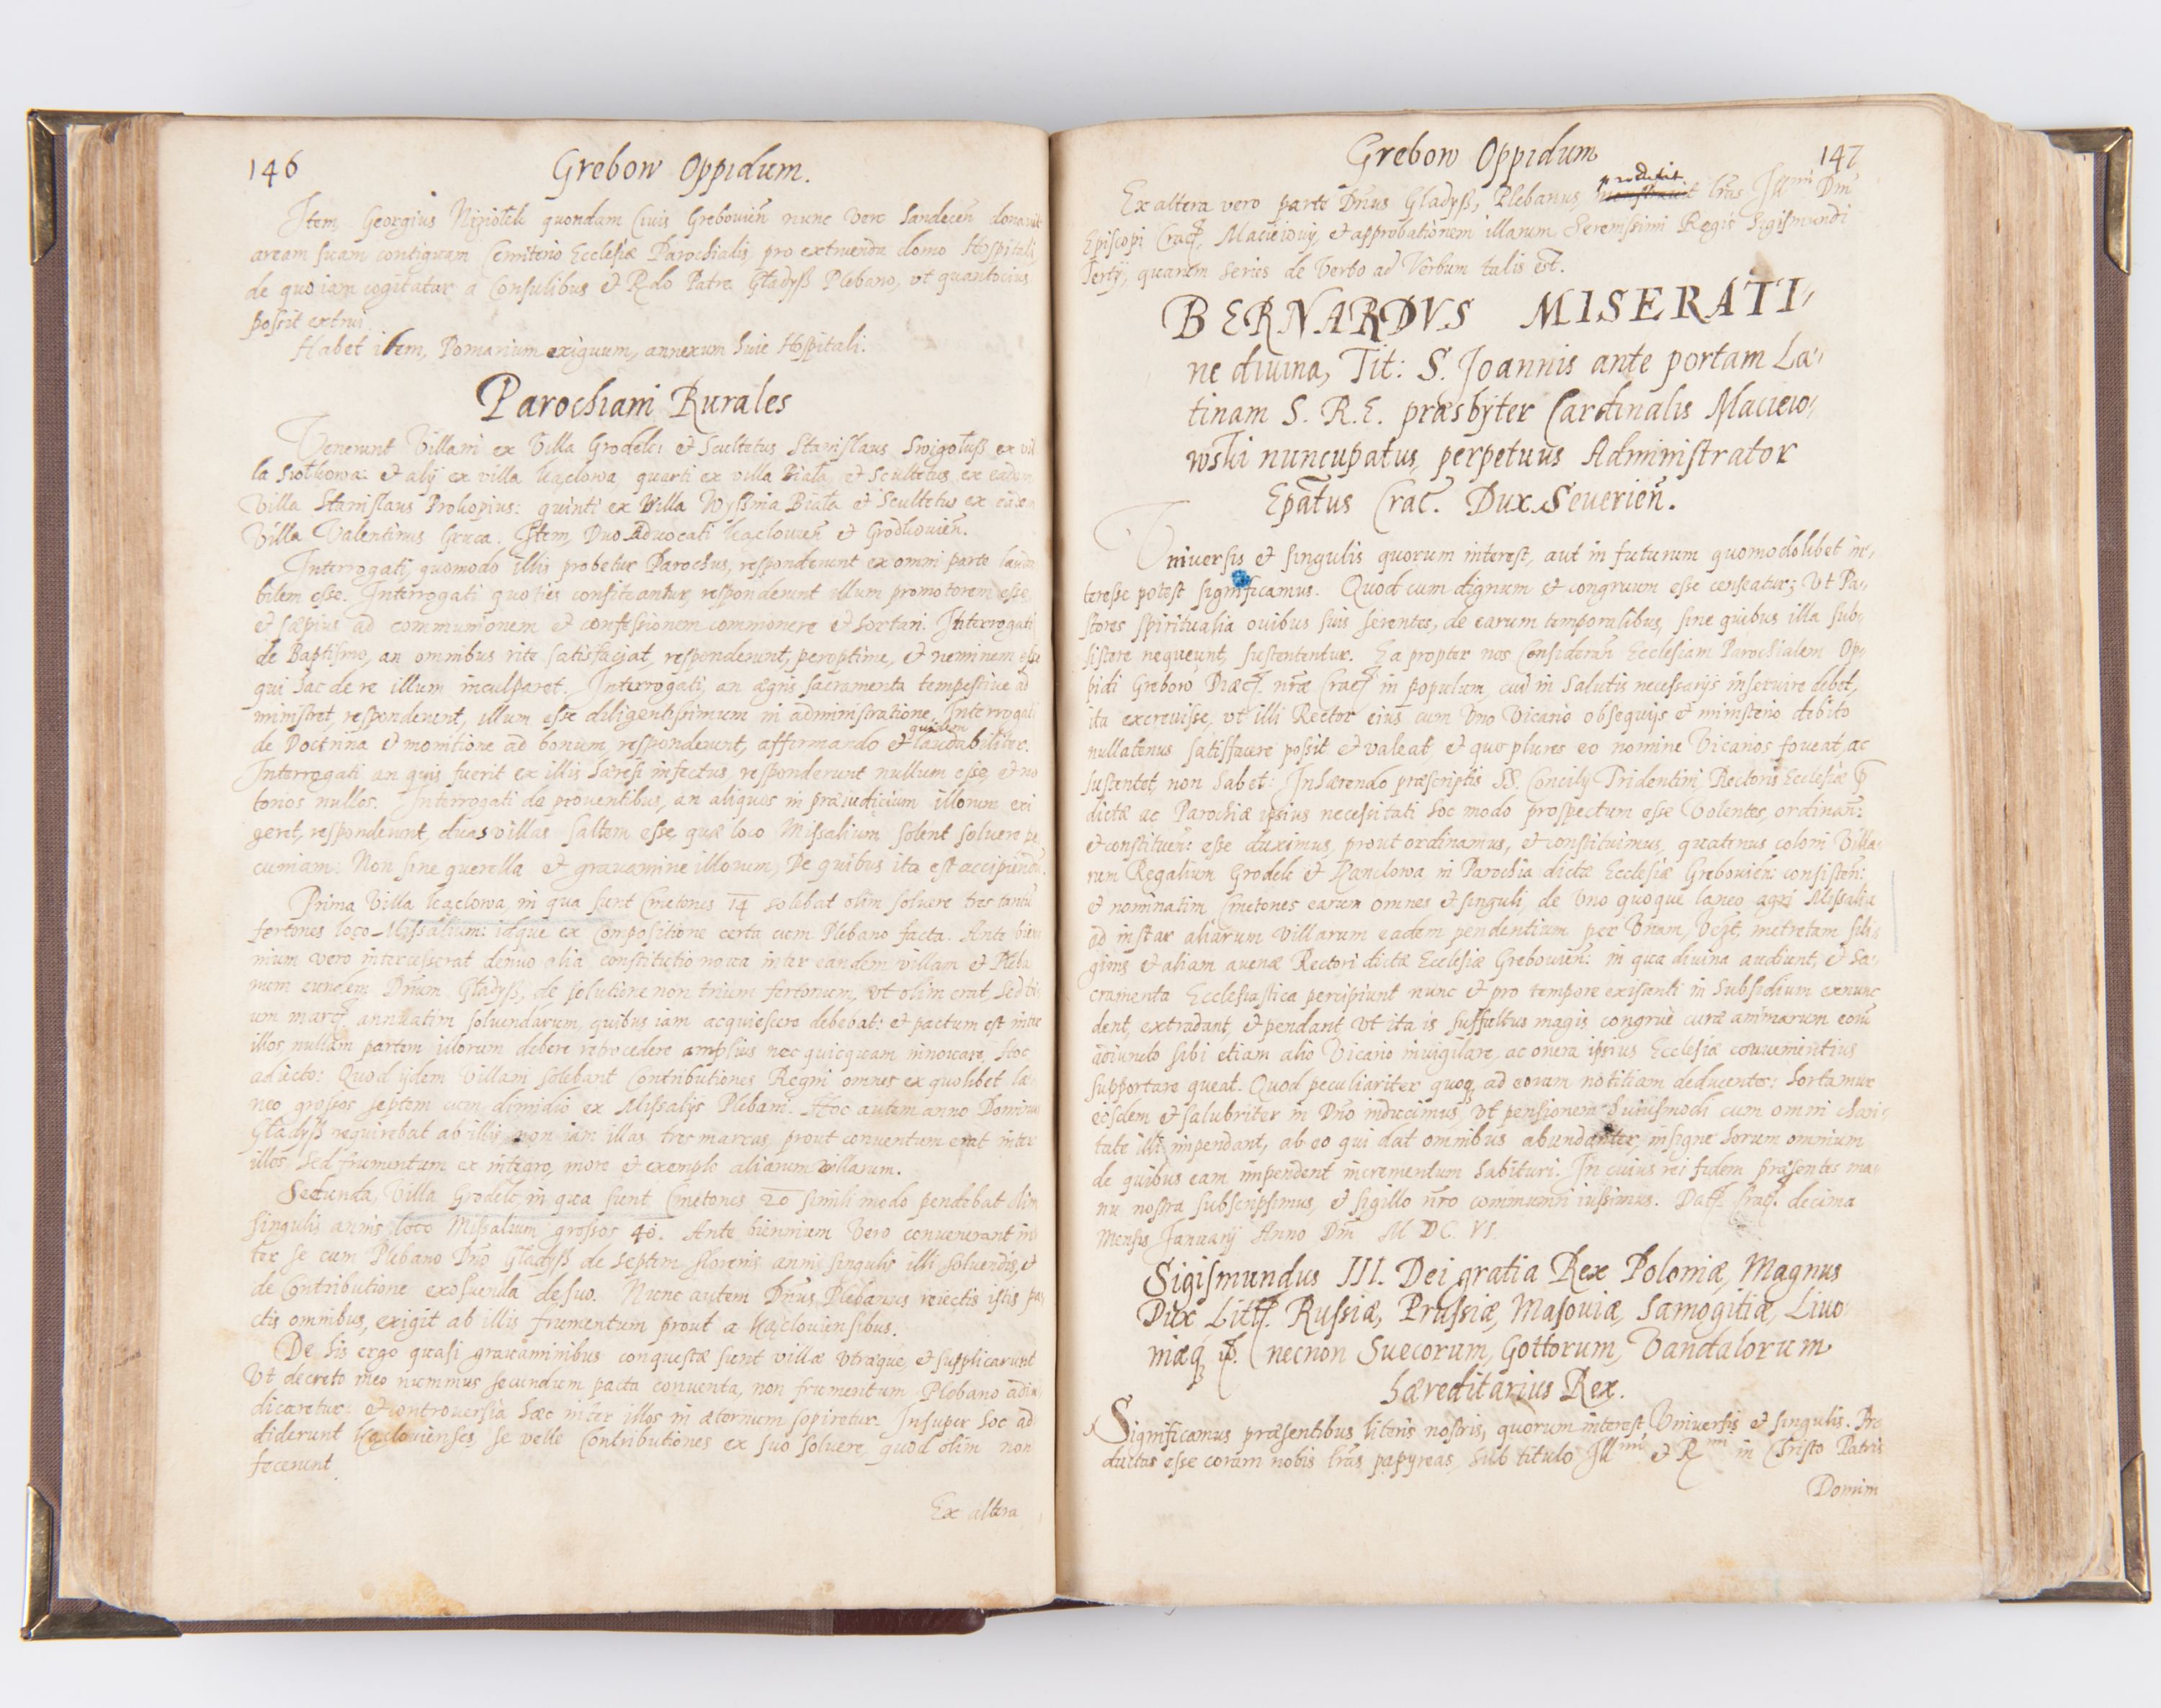 146
Grebow Oppidum.
Item Georgius Nipiołek quondam Ciuis Grebouień nunc vero Sandeceń donauit
aream suam contiguam Cemiterio Ecclesiæ Parochialis, pro extruenda domo Hospitali,
de quo iam cogitatur a Consulibus et Rdo Patre Gładyss Plebano, vt quantocius
possit extrui.
Habet item, Pomarium exiguum, annexum huic Hospitali.
Parochiani Rurales
Venerunt Villani ex Villa Grodek: et Scultetus Stanislaus Swigotuss ex vil
la Siołkowa: et alij ex villa Kąclowa, quarti ex villa Biała, et Scultetus ex eadem
Villa Stanislaus Prokopius: quinti ex Villa Wyssnia Biała et Scultetus ex eadem
Villa Valentinus Gruca. Item, Duo Aduocati Kąclowień et Grodkouień.
Interrogati, quomodo illis probetur Parochus, responderunt ex omni parte lauda
bilem esse. Interrogati quoties confiteantur, responderunt illum promotorem esse,
et sæpius ad communionem et confessionem commonere et hortari. Interrogati
de Baptismo, an omnibus rite satisfaciat, responderunt, peroptime, et neminem esse
qui hac de re illum inculparet. Interrogati, an ægris sacramenta tempestiue ad
ministret, responderunt, illum esse diligentissimum in administratione. Interrogati
de Doctrina et monitione ad bonum, responderunt, affirmando et quidem laudabiliter.
Interrogati an quis fuerit ex illis hæresi infectus, responderunt nullum esse, et no
torios nullos. Interrogati de prouentibus, an aliquos in præiudicium illorum exi
geret, responderunt, duas villas saltem esse, quæ loco Missalium solent soluere pe
cuniam: Non sine querella et grauamine illorum, De quibus ita est accipiendū.
Prima Villa Kąclowa, in qua sunt Cmetones 14 solebat olim soluere tres tantū
fertones loco Missalium: idque ex Compositione certa cum Plebano facta. Ante bien
nium vero intercesserat denuo alia constitutio noua inter eandem villam et Pleba
num eundem Dnum Gładyss, de solutione non trium fertonum, vt olim erat, sed tri
um marc annuatim soluendarum, quibus iam acquiescere debebat: et pactum est inter
illos nullam partem illorum debere retrocedere amplius nec quicquam innouare, Hoc
adiecto: Quod ijdem Villani solebant Contributiones Regni omnes ex quolibet la
neo grossos septem cum dimidio ex Missalijs Plebani. Hoc autem anno Dominus
Gładyss requirebat ab illis non iam illas tres marcas, prout conuentum erat inter
illos, sed frumentum ex integro, more et exemplo aliarum villarum.
Secunda, Villa Grodek in qua sunt Cmetones 20 simili modo pendebat olim
singulis annis loco Missalium grossos 40. Ante biennium vero conuenerant in
ter se cum Plebano Dno Gładyss de septem florenis annis singulis illi soluendis, et
de Contributione exoluenda de suo. Nunc autem Dnus Plebanus reiectis istis pa
ctis omnibus, exigit ab illis frumentum prout a Kąclouiensibus.
De his ergo quasi grauaminibus conquestæ sunt villæ vtræque, et supplicarunt
Vt decreto meo nummus secundum pacta conuenta, non frumentum Plebano adiu
dicaretur: et controuersia hæc inter illos in æternum sopiretur. Insuper hoc ad
diderunt Kąclouienses, se velle Contributiones ex suo soluere, quod olim non
fecerunt
Ex altera
147
Grebow Oppidum
Ex altera vero parte Dnus Gladyss, Plebanus produxit lras Illmi Dni
Episcopi Crac, Macieiouij, et approbationem illarum Serenissimi Regis Sigismundi
Tertij, quarum series de Verbo ad Verbum talis est.
BERNARDVS MISERATI-
ne diuina, Tit: S. Joannis ante portam La-
tinam S. R. E. præsbyter Cardinalis Macieio-
wski nuncupatus, perpetuus Administrator
Epatus Crac. Dux Seuerień.
Vniuersis et singulis quorum interest, aut in futurum quomodolibet in-
teresse potest significamus. Quod cum dignum et congruum esse censeatur; Vt Pa-
stores spiritualia ouibus suis ferentes, de earum temporalibus, sine quibus illa sub-
sistere nequeunt, sustententur. Ea propter nos Consideran Ecclesiam Parochialem Op-
pidi Grebow Diæc. nræ Crac in populum, cui in Salutis necessarijs inseruire debet,
ita excreuisse, vt illi Rector eius cum vno Vicario obsequijs et ministerio debito
nullatenus satisfacere possit et valeat, et quo plures eo nomine Vicarios foueat, ac
sustentet, non habet: Inhærendo præscriptis SS. Concilij Tridentini, Rectoris Ecclesiæ p
dictæ ac Parochiæ ipsius necessitati hoc modo prospectum esse Volentes, ordinan:
et constituen: esse duximus, prout ordinamus, et constituimus, quatenus coloni Villa-
rum Regalium Grodek et Kanclowa in Parochia dictæ Ecclesiæ Grebouień: consisten:
et nominatim Cmetones earum omnes et singuli, de vno quoque laneo agri Missalia
ad instar aliarum villarum eadem pendentium per Vnam, Vczt. metretam sili-
ginis et aliam auenæ Rectori dictæ Ecclesiæ Grebouień: in qua diuina audiunt, et Sa-
cramenta Ecclesiastica percipiunt nunc et pro tempore existenti in Subsidium exnunc
dent, extradant, et pendant, vt ita is suffultus magis congruè curæ animarum eorū
adiuncto sibi etiam alio Vicario inuigilare, ac onera ipsius Ecclesiæ conuenientius
supportare queat. Quod peculiariter quoq ad eorum notitiam deducentes: hortamur
eosdem et salubriter in Dno inducimus, vt pensionem huiusmodi cum omni chari-
tate illi impendant, ab eo qui dat omnibus abundanter, insigne horum omnium
de quibus eam impendent incrementum habituri. In cuius rei fidem præsentes ma-
nu nostra subscripsimus, et sigillo nro communiri iussimus. Dat. Crac. decima
Mensis Januarij Anno Dni M DC. VI.
Sigismundus III. Dei gratia Rex Poloniæ, Magnus
Dux Litt. Russiæ, Prussiæ, Masouiæ, Samogitiæ, Liuo
niæq necnon Suecorum, Gottorum, Vandalorum
hæreditarius Rex.
Significamus præsentibus literis nostris, quorum interest, Vniuersis et singulis. Pro
ductas esse coram nobis lras papyreas, sub titulo Illmi et Rmi in Christo Patris
Domini